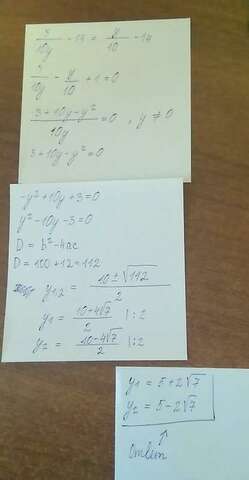 3/10y - 13 = y/10 - 14
3/10y - y/10 + 1 = 0
(3+10y-y²)/10y = 0, y ≠ 0
3+10y-y²=0
-y²+10y+3=0
y²-10y-3=0
D = b²-4ac
D = 100+12=112
y1,2 = (10±√112)/2
y1 = (10-4√7)/2 |:2
y2 = (10-4√7)/2 |:2
y1 = 5+2√7
y2 = 5-2√7
↑
Ответ